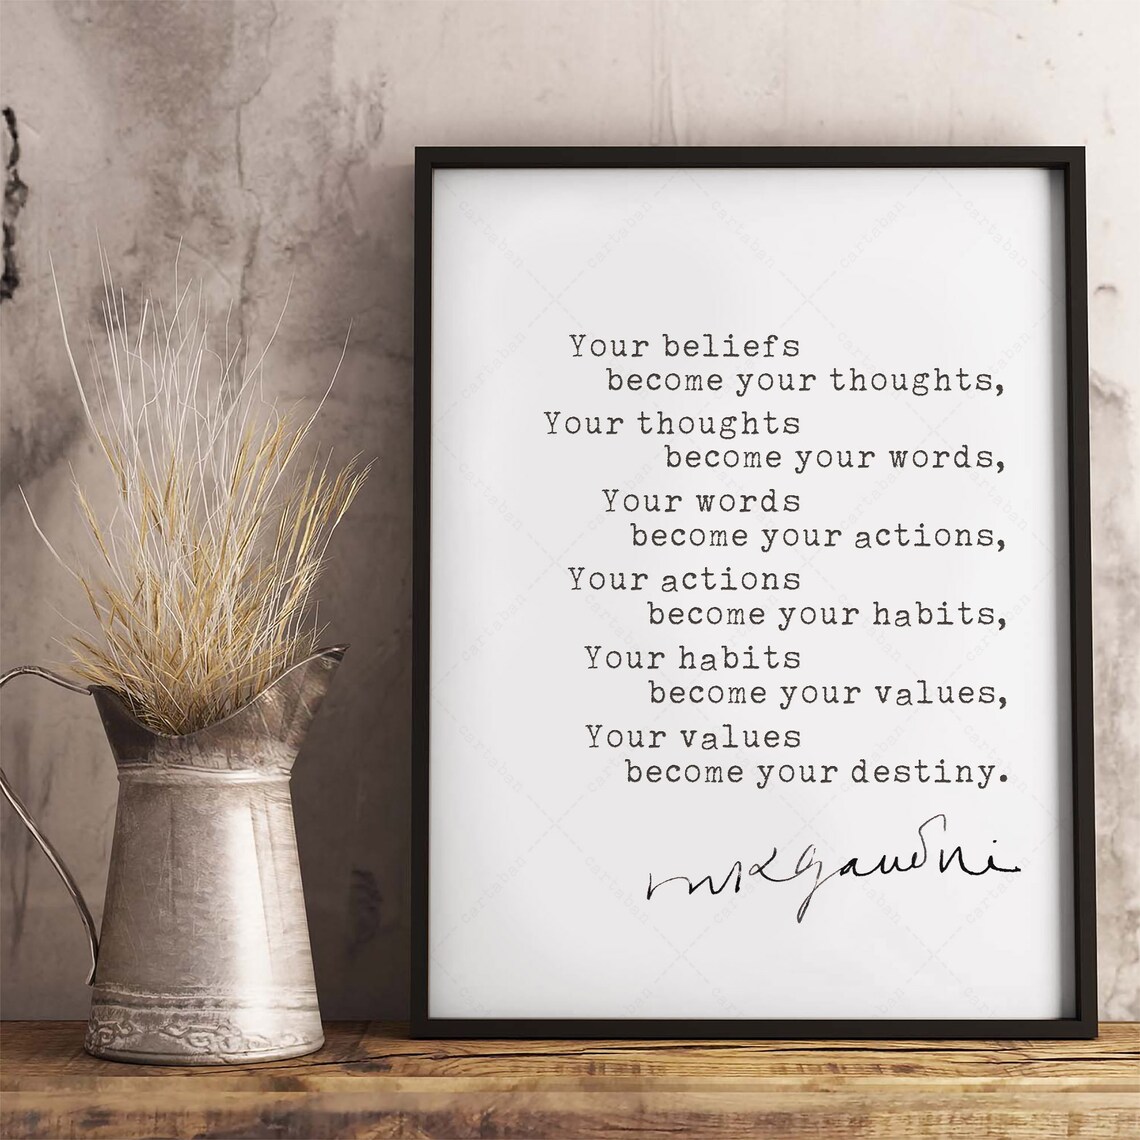 Your beliefs
become your thoughts,
Your thoughts
become your words,
Your words
become your actions,
Your actions
become your habits,
Your habits
become your values,
Your values
become your destiny.
mkgandhi
cartaban